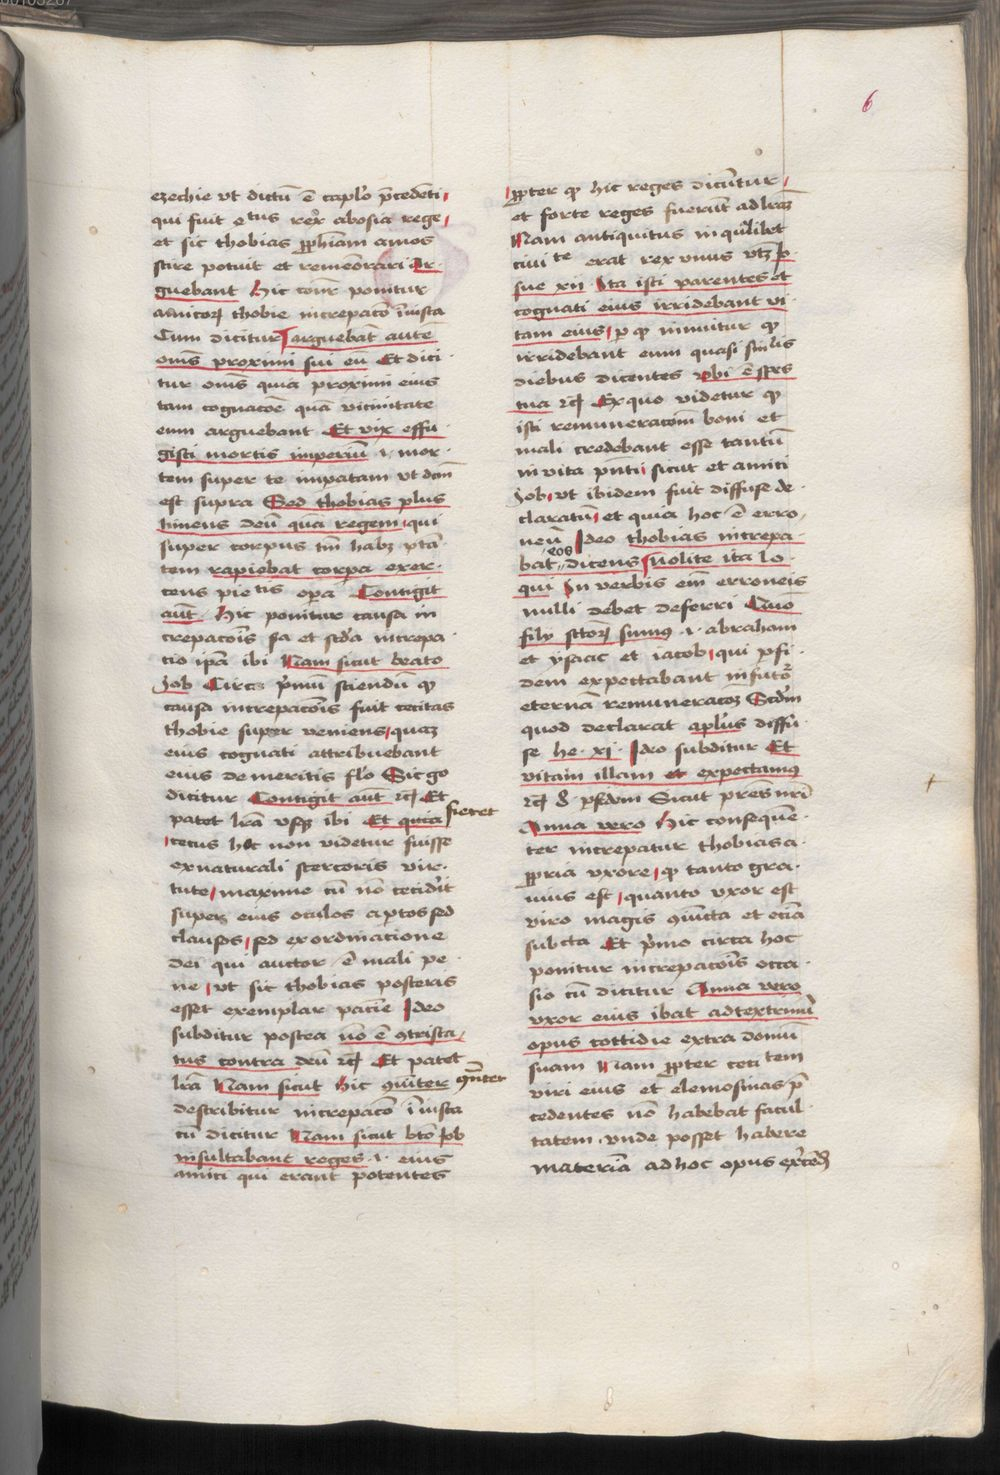 6
ezechie vt dictū ē caplo p̄cedēti
qui fuit etus rex abosia rege
et sic thobias ꝓph̄iam amos
scire potuit et remēorari Ar-
guebant Hic cōnr ponitur
amicorꝫ thobie increpacō īiusta
Cum dicitur arguebāt autē
om̄s proximi sui eū Et dici-
tur om̄s quia proximi eius
tam cognacōe quā vicinitate
eum arguebant Et vix effu-
gisti mortis imperiū .i. mor-
tem super te impatam vt dcm̄
est supra Sed thobias plus
timens deū quā regem qui
super corpus tm̄ habꝫ ptā-
tem rapiebat corpa exer-
cens pietis opa Contigit
aūt Hic ponitur causa in
crepacōis sa et scd̄a increpa-
cio ip̄a ibi Nam sicut beato
Job Circa p̄mū sciendū ꝙ
causa increpacōis fuit cecitas
thobie super veniens quaꝫ
eius cognati attribuebant
eius demeritis flo Sic go
dicitur Contigit aūt rc̄ Et
patet lr̄a vsqꝫ ibi Et quia fieret
cecus hoc non videtur fuisse
ex naturali stercoris vir-
tute maxime cū nō cecidit
super eius oculos aptos sed
clausos sed ex ordinacione
dei qui auctor ē mali pe-
ne vt sic thobias posteris
esset exemplar pacīe Ideo
subditur postea nō ē ꝯtrista-
tus contra deū rc̄ Et patet
lr̄a Nam sicut Hic ꝯn̄ter ꝯn̄ter
describitur increpacō īiusta
cū dicitur Nam sicut bto Job
insultabant reges .i. eius
amici qui erant potentes
ꝓpter ꝙ hic reges dicūtur
et forte reges fuerūt ad lr̄aꝫ
Nam antiquitus in qūlibet
civite erat rex vnus vtꝫ Jo-
sue xii Ita isti parentes et
cognati eius irridebant vi-
tam eius p ꝙ innuitur ꝙ
irridebant eum quasi sinlis
diebus dicentes vbi ē spes
tua rc̄ Ex quo videtur ꝙ
isti remuneracōm boni et
mali credebant esse tantū
in vita pn̄ti sicut et amici
Job vt ibidem fuit diffuse de-
claratū et quia hoc ē erro-
neū Ideo thobias increpa-
bat eos dicens Nolite ita lo-
qui In verbis em̄ erroneis
nulli debet deferri Qm̄
filij sctorꝫ sumꝰ .i. abraham
et ysaac et iacob qui ꝑ fi-
dem expectabant in futoꝝ
eternā remuneracōꝫ Scd̄m
quod declarat aplus diffu-
se he. xi. Ideo subditur Et
vitam illam et expectamꝰ
rc̄ Sicut pr̄es nr̄i
Anna vero Hic consequē-
ter increpatur thobias a
ꝓpria vxore ꝙ tanto gra-
uius est quanto vxor est
viro magis ꝯiūcta et eciā
subcta Et p̄mo circa hoc
ponitur increpacōis occa-
sio cū dicitur Anna vero
vxor eius ibat ad textrinū
opus cottidie extra domū
suam Nam ꝓpter cecitem
viri eius et elemosinas p̄-
cedentes nō habebat facul-
tatem vnde posset habere
materiā ad hoc opus exercēdū